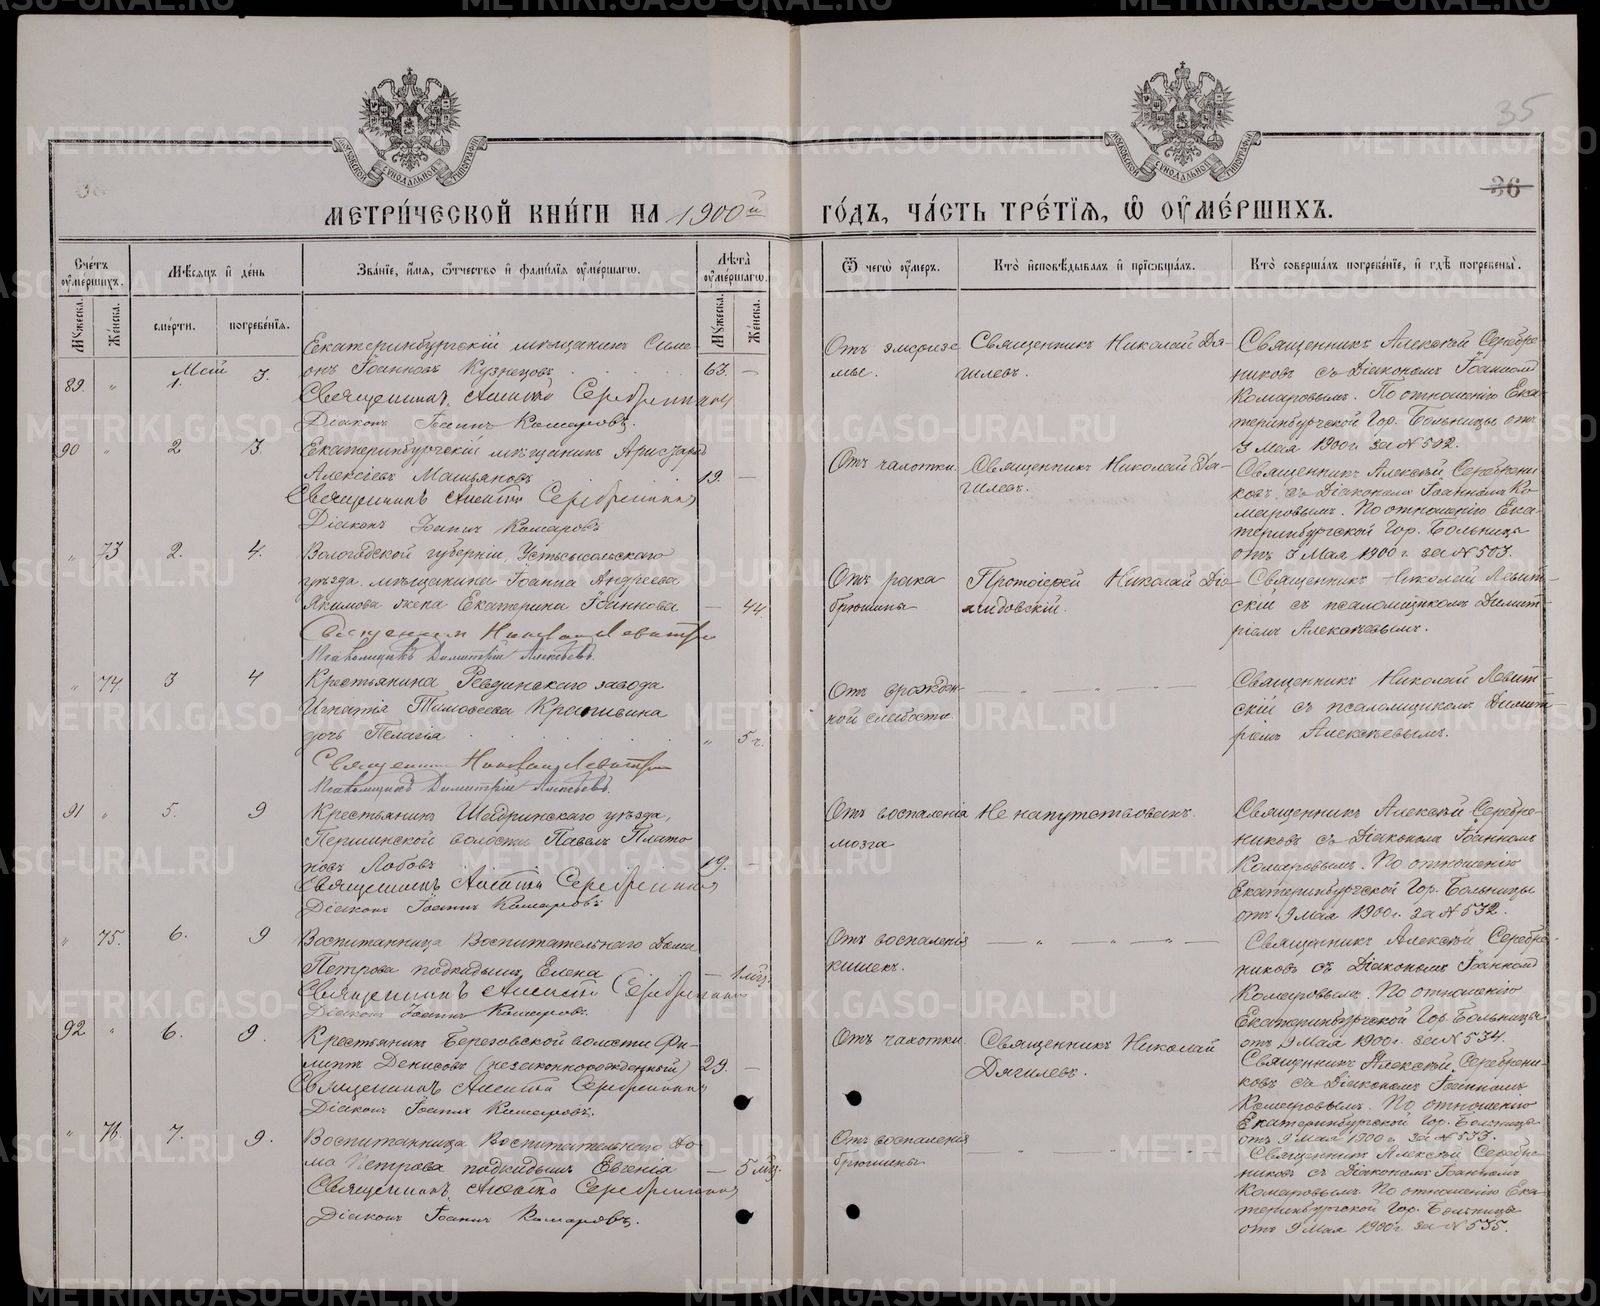 35
36
МЕТРИ́ЧЕСКОЙ КНИ́ГИ НА 1900й ГО́ДЪ, ЧА́СТЬ ТРЕ́ТІЯ, Ѿ ОУ҆МЕ́РШИХЪ.
Сче́тъ оу҆ме́ршихъ.
Мѣ́сяцъ и҆ де́нь
Зва́нїе, и҆́мя, ѻ҆́тчество и҆ фамилїя оу҆ме́ршагѡ.
Лѣ́та оу҆ме́ршагѡ.
Ѿ чегѡ̀ оу҆́меръ.
Кто̀ и҆сповѣ́дывалъ и҆ прїѡбща́лъ.
Кто̀ соверша́лъ погребе́нїе, и҆ гдѣ̀ погребены̀.
Мꙋ́жеска.
Же́нска.
сме́рти.
погребе́нїя.
Мꙋ́жеска.
Же́нска.
89 „ Май 1. 3.
Екатеринбургскій мѣщанинъ Симе
онъ Іоанновъ Кузнецовъ 63. —
Священникъ Алексѣй Серебренниковъ
Діаконъ Іоаннъ Комаровъ.
Отъ эмфизе
мы.
Священникъ Николай Дя-
гилевъ.
Священникъ Алексѣй Серебре
никовъ съ Діакономъ Іоанномъ
Комаровымъ. По отношенію Ека-
теринбургской Гор. Больницы отъ
3 Мая 1900 г. за № 502.
90 „ 2 3.
Екатеринбургскій мѣщанинъ
Алексѣевъ 19. —
Священникъ Алексѣй Серебренниковъ
Діаконъ Іоаннъ Комаровъ
Отъ чахотки.
Священникъ Николай Дя-
гилевъ.
Священникъ Алексѣй Серебрени
ковъ съ Діакономъ Іоанномъ Ко
маровымъ. По отношенію Ека-
теринбургской Гор. Больницы
отъ 3 Мая 1900 г. за № 503.
„ 73 2. 4.
Вологодской губерніи, Устьсысольскаго
уѣзда мѣщанина Іоанна Андреева
Якимова жена Екатерина Іоаннова — 44.
Священникъ Николай Левитскій
Псаломщикъ Димитрій Алексѣевъ.
Отъ рака
брюшины
Протоіерей Николай Діо-
мидовскій.
Священникъ Николай Левит-
скій съ псаломщикомъ Димит-
ріемъ Алексѣевымъ.
„ 74. 3 4
Крестьянина Ревдинскаго завода
Игнатія Тимофеева Крапивина
дочь Пелагія „ 5 ч.
Священникъ Николай Левитскій
Псаломщикъ Димитрій Алексѣевъ.
Отъ врожден-
ной слабости.
— „ — „ —
Священникъ Николай Левит-
скій съ псаломщикомъ Димит-
ріемъ Алексѣевымъ.
91 „ 5. 9
Крестьянинъ Шадринскаго уѣзда,
Першинской волости Павелъ Плато
новъ Лобовъ 19. —
Священникъ Алексѣй Серебренниковъ
Діаконъ Іоаннъ Комаровъ
Отъ воспаленія
мозга
Не напутствованъ.
Священникъ Алексѣй Серебре-
никовъ съ Діакономъ Іоанномъ
Комаровымъ. По отношенію
Екатеринбургской Гор. Больницы
отъ 9 Мая 1900 г. за № 532.
„ 75. 6. 9
Воспитанница Воспитательнаго Дома
Петрова подкидышъ Елена — 1 мѣс.
Священникъ Алексѣй Серебренниковъ
Діаконъ Іоаннъ Комаровъ.
Отъ воспаленія
кишекъ.
— „ — „ — „ —
Священникъ Алексѣй Серебре-
никовъ съ Діакономъ Іоанномъ
Комаровымъ. По отношенію
Екатеринбургской Гор. Больницы
отъ 9 Мая 1900 г. за № 534.
92 „ 6. 9.
Крестьянинъ Березовской волости Фи-
липъ Денисовъ (незаконнорожденный) 29. —
Священникъ Алексѣй Серебренниковъ
Діаконъ Іоаннъ Комаровъ.
Отъ чахотки.
Священникъ Николай
Дягилевъ.
Священникъ Алексѣй Серебрени-
ковъ съ Діакономъ Іоанномъ
Комаровымъ. По отношенію
Екатеринбургской Гор. Больницы
отъ 9 Мая 1900 г. за № 533.
„ 76. 7. 9.
Воспитанница Воспитательнаго До-
ма Петрова подкидышъ Евгенія — 5 мѣс.
Священникъ Алексѣй Серебренниковъ
Діаконъ Іоаннъ Комаровъ.
Отъ воспаленія
брюшины
— „ — „ —
Священникъ Алексѣй Серебре-
никовъ съ Діакономъ Іоанномъ
Комаровымъ. По отношенію Ека-
теринбургской Гор. Больницы
отъ 9 Мая 1900 г. за № 535.
METRIKI.GASO-URAL.RU